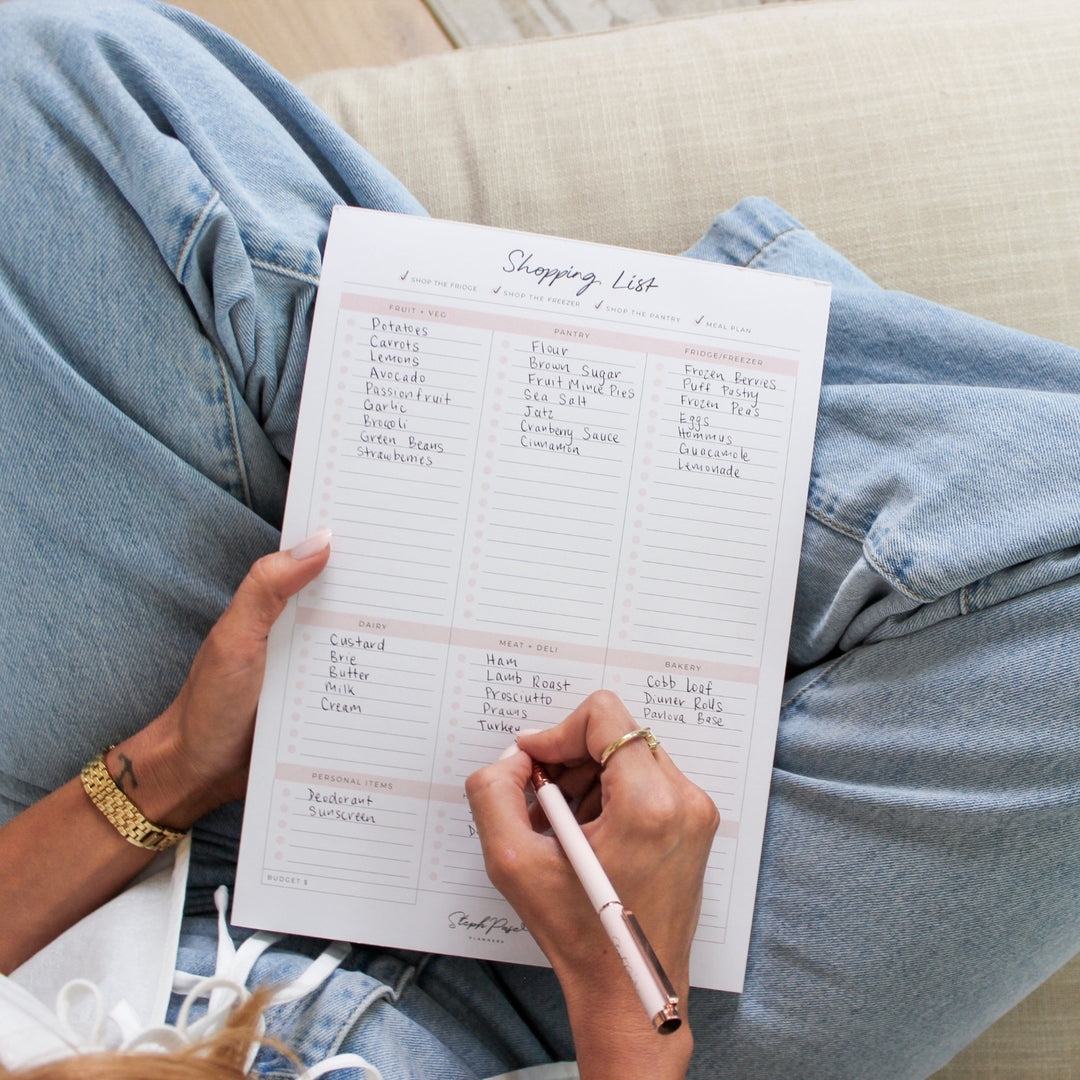 Shopping List
✓ SHOP THE FRIDGE ✓ SHOP THE FREEZER ✓ SHOP THE PANTRY ✓ MEAL PLAN
FRUIT + VEG
Potatoes
Carrots
Lemons
Avocado
Passionfruit
Garlic
Brocoli
Green Beans
Strawberries
PANTRY
Flour
Brown Sugar
Fruit Mince Pies
Sea Salt
Jatz
Cranberry Sauce
Cinnamon
FRIDGE/FREEZER
Frozen Berries
Puff Pastry
Frozen Peas
Eggs
Hommus
Guacamole
Lemonade
DAIRY
Custard
Brie
Butter
Milk
Cream
MEAT + DELI
Ham
Lamb Roast
Prosciutto
Prawns
Turkey
BAKERY
Cobb Loaf
Dinner Rolls
Pavlova Base
PERSONAL ITEMS
Deodorant
Sunscreen
BUDGET $
Steph Pase
PLANNERS